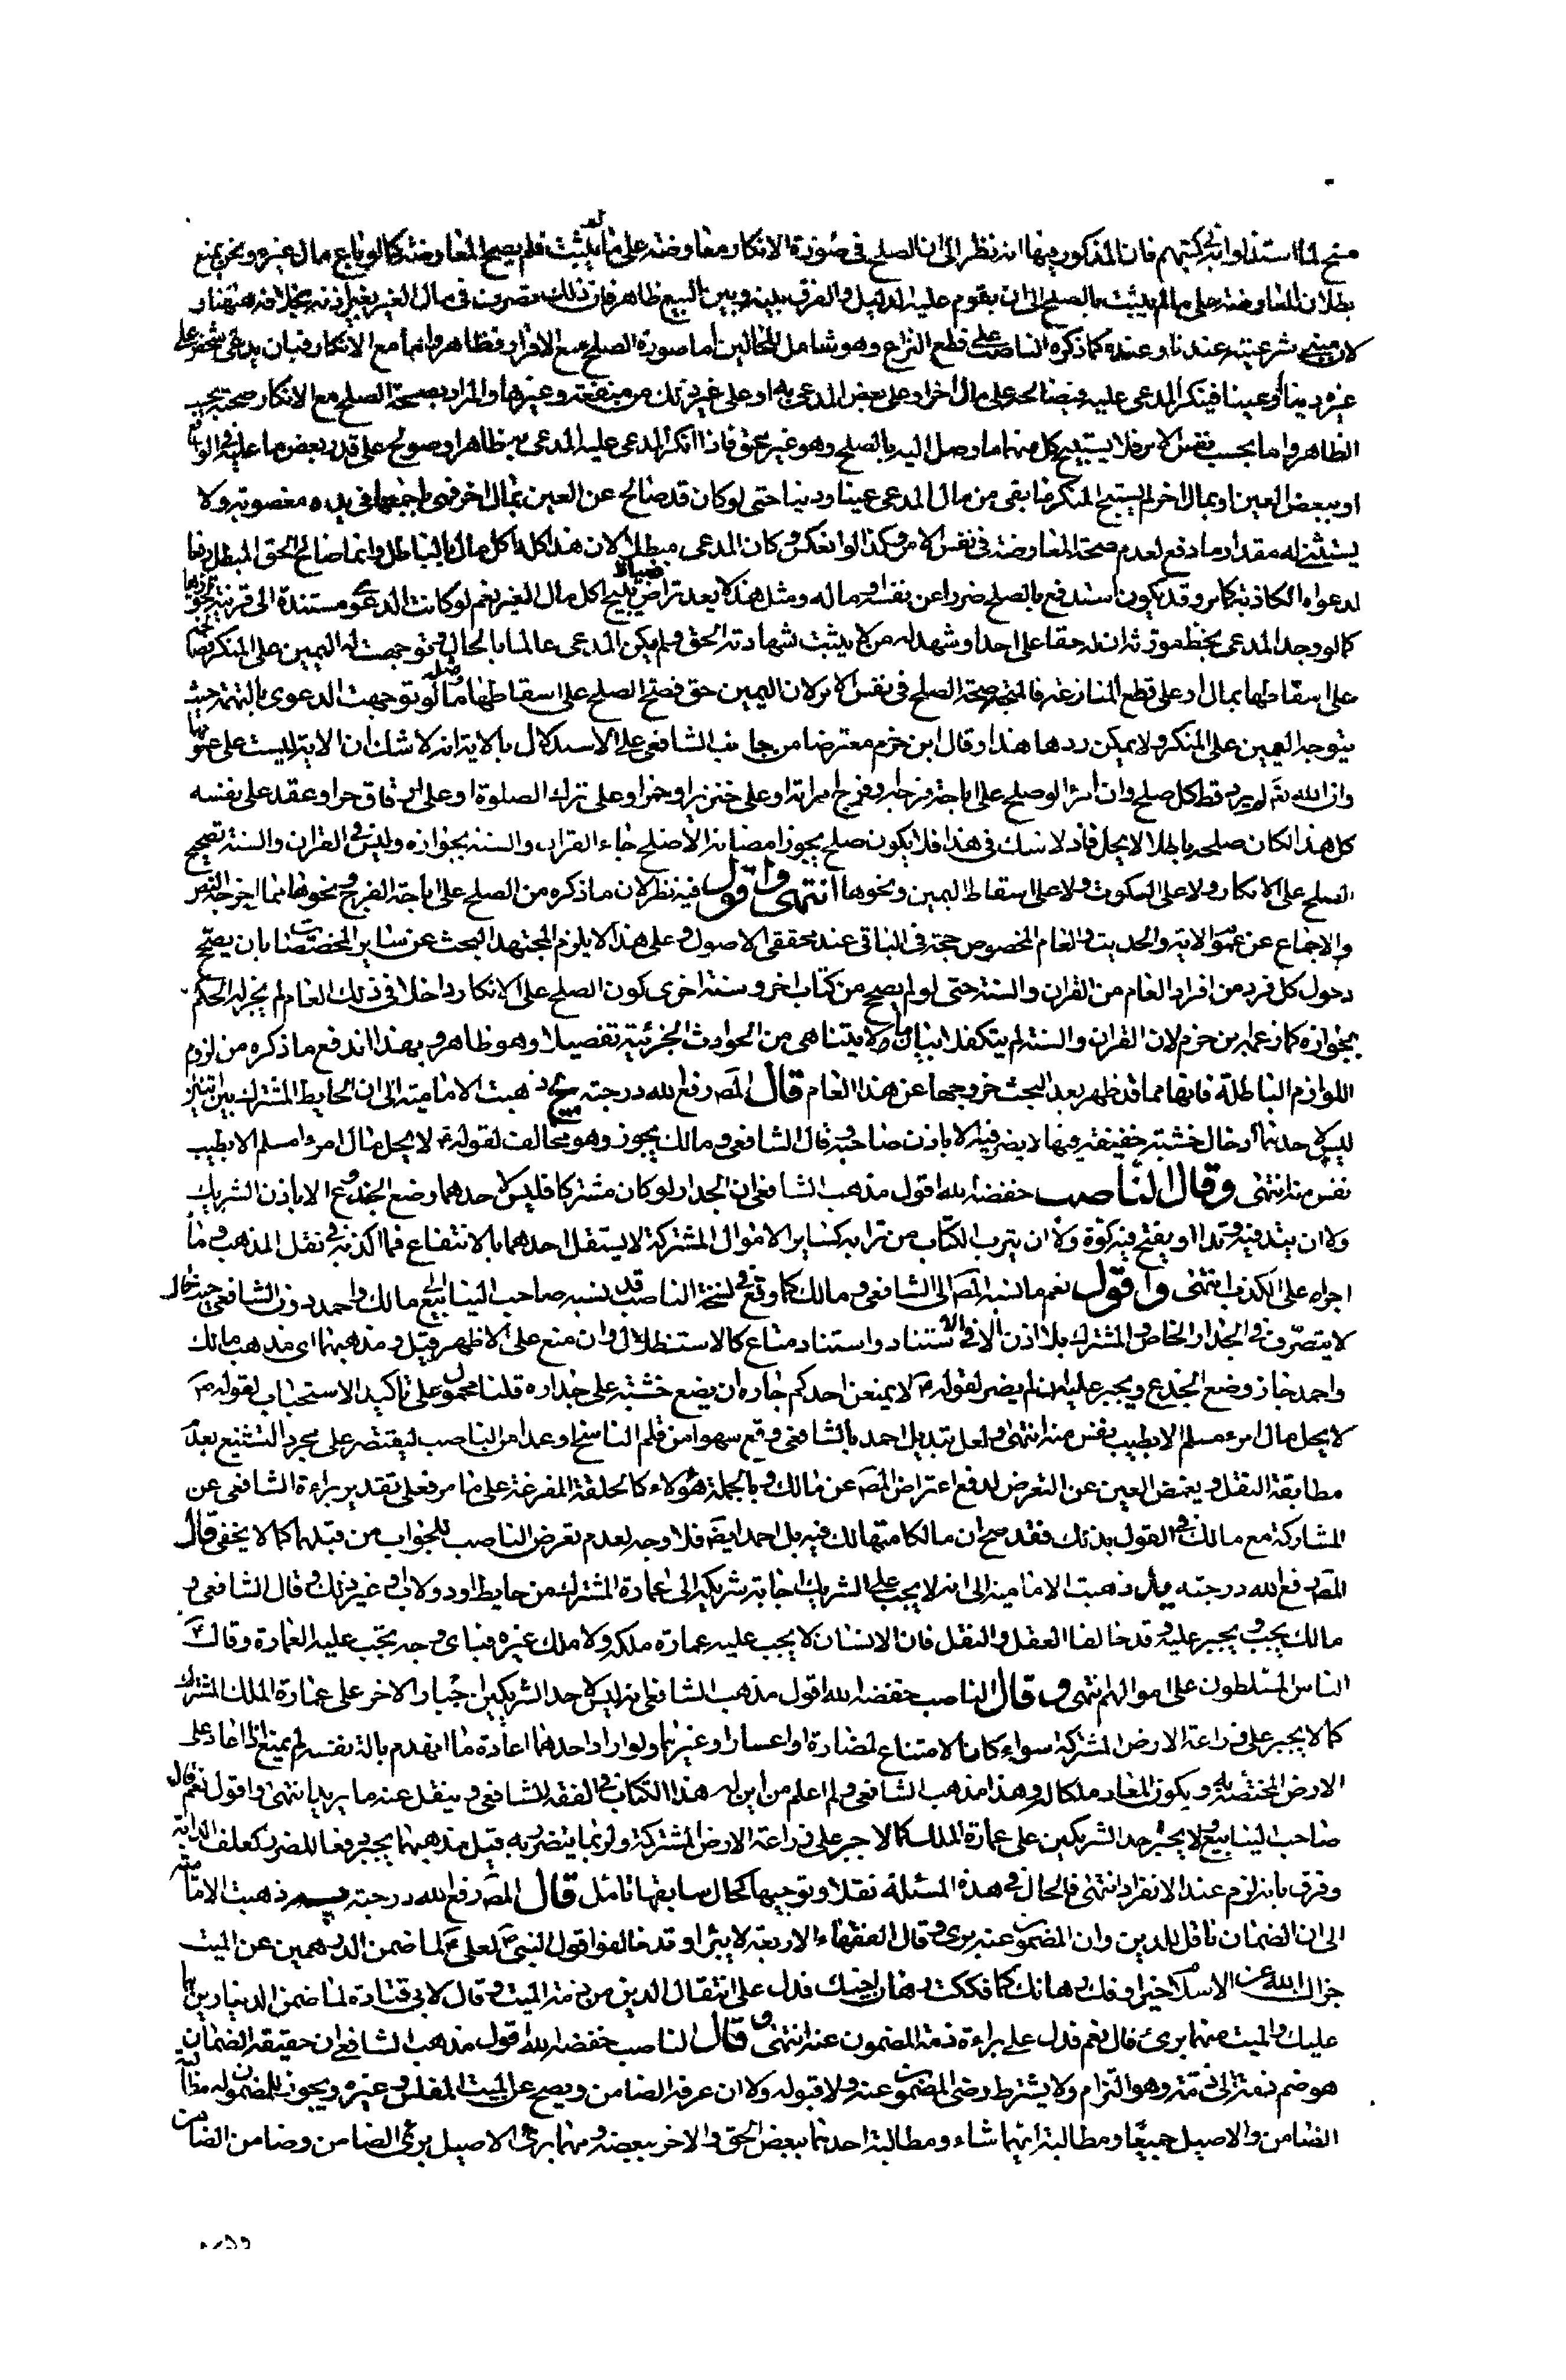 منح لما استدلوا به في كتبهم فان المذكور فيها انه نظر الى ان الصلح في صورة الانكار معاوضة على ما لم يثبت فلم يصح المعاوضة كما لو باع مال غيره ونحن نمنع
بطلان المعاوضة على ما لم يثبت بالصلح الى ان يقوم عليه الدليل والفرق بينه وبين البيع ظاهر فان ذلك تصرف في مال الغير بغير اذنه بخلافه هيهنا و
لان مبنى شرعيته عندنا وعنده كما ذكره الناصب على قطع النزاع وهو شامل للحالين أما صورة الصلح مع الاقرار فظاهر واما مع الانكار فبان يدعى شخص على
غيره دينا أو عينا فينكر المدعى عليه فيصالحه على مال اخر او على بعض المدعى به او على غير ذلك من منفعة وغيرها والمراد بصحة الصلح مع الانكار صحته بحسب
الظاهر واما بحسب نفس الامر فلا يستبيح كل منهما ما وصل اليه بالصلح وهو غير محق فاذا انكر المدعى عليه المدعى به ظاهرا وصولح على قدر بعض ما عليه في الواقع
او ببعض العين او بمال اخر لم يستبح المنكر ما بقى من مال المدعى عينا ودينا حتى لو كان قد صالح عن العين بمال اخر فهى باجمعها في يده مغصوبة ولا
يستثنى له مقدار ما دفع لعدم صحة المعاوضة في نفس الامر وكذا لو انعكس وكان المدعى مبطلا لان هذا كله اكل مال بالباطل وانما صالح المحق المبطل دفعا
لدعواه الكاذبة كما مر وقد يكون استدفع بالصلح ضررا عن نفسه او ماله ومثل هذا لا يعد تراضيا يبيح اكل مال الغير نعم لو كانت الدعوى مستندة الى قرينة تجوزها
كما لو وجد المدعى بخط مورثه ان له حقا على احد او شهد له من لا يثبت بشهادته الحق ولم يكن المدعى عالما بالحال وتوجهت له اليمين على المنكر فصالحه
على اسقاطها بمال او على قطع المنازعة فالمتجه صحة الصلح في نفس الامر لان اليمين حق فصح الصلح على اسقاطها ومثله ما لو توجهت الدعوى بالتهمة حيث
يتوجه اليمين على المنكر ولا يمكن ردها هذا وقال ابن حزم معترضا من جانب الشافعى على الاستدلال بالاية انه لا شك ان الاية ليست على عمومها
وان الله تع لم يرد قط كل صلح وان امرأ لو صلح على اباحة فرجه او فرج امراته او على خنزير او خمر او على ترك الصلوة او على ارقاق حر او عقد على نفسه
كل هذا لكان صلحه باطلا لا يحل فاذ لا شك في هذا فلا يكون صلح يجوز امضائه الا صلح جاء القران والسنة بجوازه وليس في القران والسنة تصحيح
الصلح على الانكار ولا على السكوت ولا على اسقاط اليمين ونحوها انتهى واقول فيه نظر لان ما ذكره من الصلح على اباحة الفرج ونحوها مما اخرجه النص
والاجماع عن عموم الاية والحديث والعام المخصوص حجة في الباقى عند محققى الاصول وعلى هذا لا يلزم المجتهد البحث عن ساير المخصصات بان يصح
دخول كل فرد من افراد العام من القران والسنة حتى لو لم يصح من كتاب اخر وسنة اخرى كون الصلح على الانكار داخلا في ذلك العام لم يجز له الحكم
بجوازه كما زعمه ابن حزم لان القران والسنة لم يتكفلا ببيان ما لا يتناهى من الحوادث الجزئية تفصيلا وهو ظاهر وبهذا اندفع ما ذكره من لزوم
اللوازم الباطلة فانها مما قد ظهر بعد البحث خروجها عن هذا العام قال المص رفع الله درجته ذهبت الامامية الى ان الحايط المشترك بين اثنين
ليس لاحدهما ادخال خشبة خفيفة فيها لا يضر فيه الا باذن صاحبه وقال الشافعى ومالك يجوز وهو مخالف لقوله ص لا يحل مال امرء مسلم الا بطيب
نفس منه انتهى وقال الناصب خفضه الله اقول مذهب الشافعى ان الجدار لو كان مشتركا فليس لاحدهما وضع الجذوع الا باذن الشريك
ولا ان يتد فيه وتدا او يفتح فيه كوة ولا ان يترب الكتاب من ترابه كساير الاموال المشتركة لا يستقل احدهما بالانتفاع فما اكذبه في نقل المذهب وما
اجراه على الكذب انتهى واقول نعم ما نسبه المص الى الشافعى ومالك كما وقع في نسخة الناصب قد نسبه صاحب الينابيع الى مالك واحمد دون الشافعى حيث قال
لا يتصرف في الجدار الخاص والمشترك بلا اذن الا في الاستناد واسناد متاع كالاستظلال وان منع على الاظهر وقيل ومذهبهما اى مذهب مالك
واحمد جاز وضع الجذع ويجبر عليه ان لم يضر لقوله ص لا يمنعن احدكم جاره أن يضع خشبه على جداره قلنا محمول على تاكيد الاستحباب لقوله ص
لا يحل مال امرء مسلم الا بطيب نفس منه انتهى ولعل تبديل احمد بالشافعى وقع سهوا من قلم الناسخ او عمدا من الناصب ليقتصر على مجرد التشنيع بعدم
مطابقة النقل ويغمض العين عن التعرض لدفع اعتراض المص عن مالك وبالجملة هؤلاء كالحلقة المفرغة على ما مر فعلى تقدير براءة الشافعى عن
المشاركة مع مالك في القول بذلك فقد صح ان مالكا متهالك فيه بل احمد ايضا فلا وجه لعدم تعرض الناصب للجواب من قبلهما كما لا يخفى قال
المص رفع الله درجته ذهبت الامامية الى انه لا يجب على الشريك اجابة شريكه الى عمارة المشترك من حايط او دولاب وغير ذلك وقال الشافعى و
مالك يجب ويجبر عليه وقد خالفا العقل والنقل فان الانسان لا يجب عليه عمارة ملكه ولا ملك غيره فباى وجه يجب عليه العمارة وقال ص
الناس مسلطون على اموالهم انتهى وقال الناصب خفضه الله اقول مذهب الشافعى انه ليس لاحد الشريكين اجبار الاخر على عمارة الملك المشترك
كما لا يجبر على زراعة الارض المشتركة سواء كان الامتناع لمضارة او اعسار او غيرهما ولو اراد احدهما اعادة ما انهدم بالة نفسه لم يمنع اذا اعاد على
الارض المختصة به ويكون المعاد ملكا له وهذا مذهب الشافعى ولم اعلم من اين له هذا الكتاب في الفقه للشافعى وينقل عنه ما يريد انتهى واقول نعم قال
صاحب الينابيع ولا يجبر احد الشريكين على عمارة الملك كما لا جبر على زراعة الارض المشتركة ولو بما يتضرر به قيل مذهبهما يجبر دفعا للضرر كعلف الدابة
وفرق بانه لزم عند الانفراد انتهى فالحال في هذه المسئلة نقلا وتوجيها كحال سابقها تامل قال المص رفع الله درجته ذهبت الامامية
الى ان الضمان ناقل للدين وان المضمون عنه برئ وقال الفقهاء الاربعة لا يبرأ وقد خالفوا قول النبى ص لعلى ع لما ضمن الدرهمين عن الميت
جزاك الله عن الاسلام خيرا وفك رهانك كما فككت رهان اخيك فدل على انتقال الدين من ذمة الميت وقال لابى قتادة لما ضمن الدينارين هما
عليك والميت منهما برئ قال نعم فدل على براءة ذمة المضمون عنه انتهى وقال الناصب خفضه الله اقول مذهب الشافعى ان حقيقة الضمان
هو ضم ذمة الى ذمة وهو التزام ولا يشترط رضى المضمون عنه ولا قبوله ولا ان عرفه الضامن ويصح عن الميت المفلس وغيره ويجوز للمضمون له مطالبة
الضامن والاصيل جميعا ومطالبة ايهما شاء ومطالبة احدهما ببعض الحق والاخر ببعضه ومهما برئ الاصيل برئ الضامن وضامن الضامن